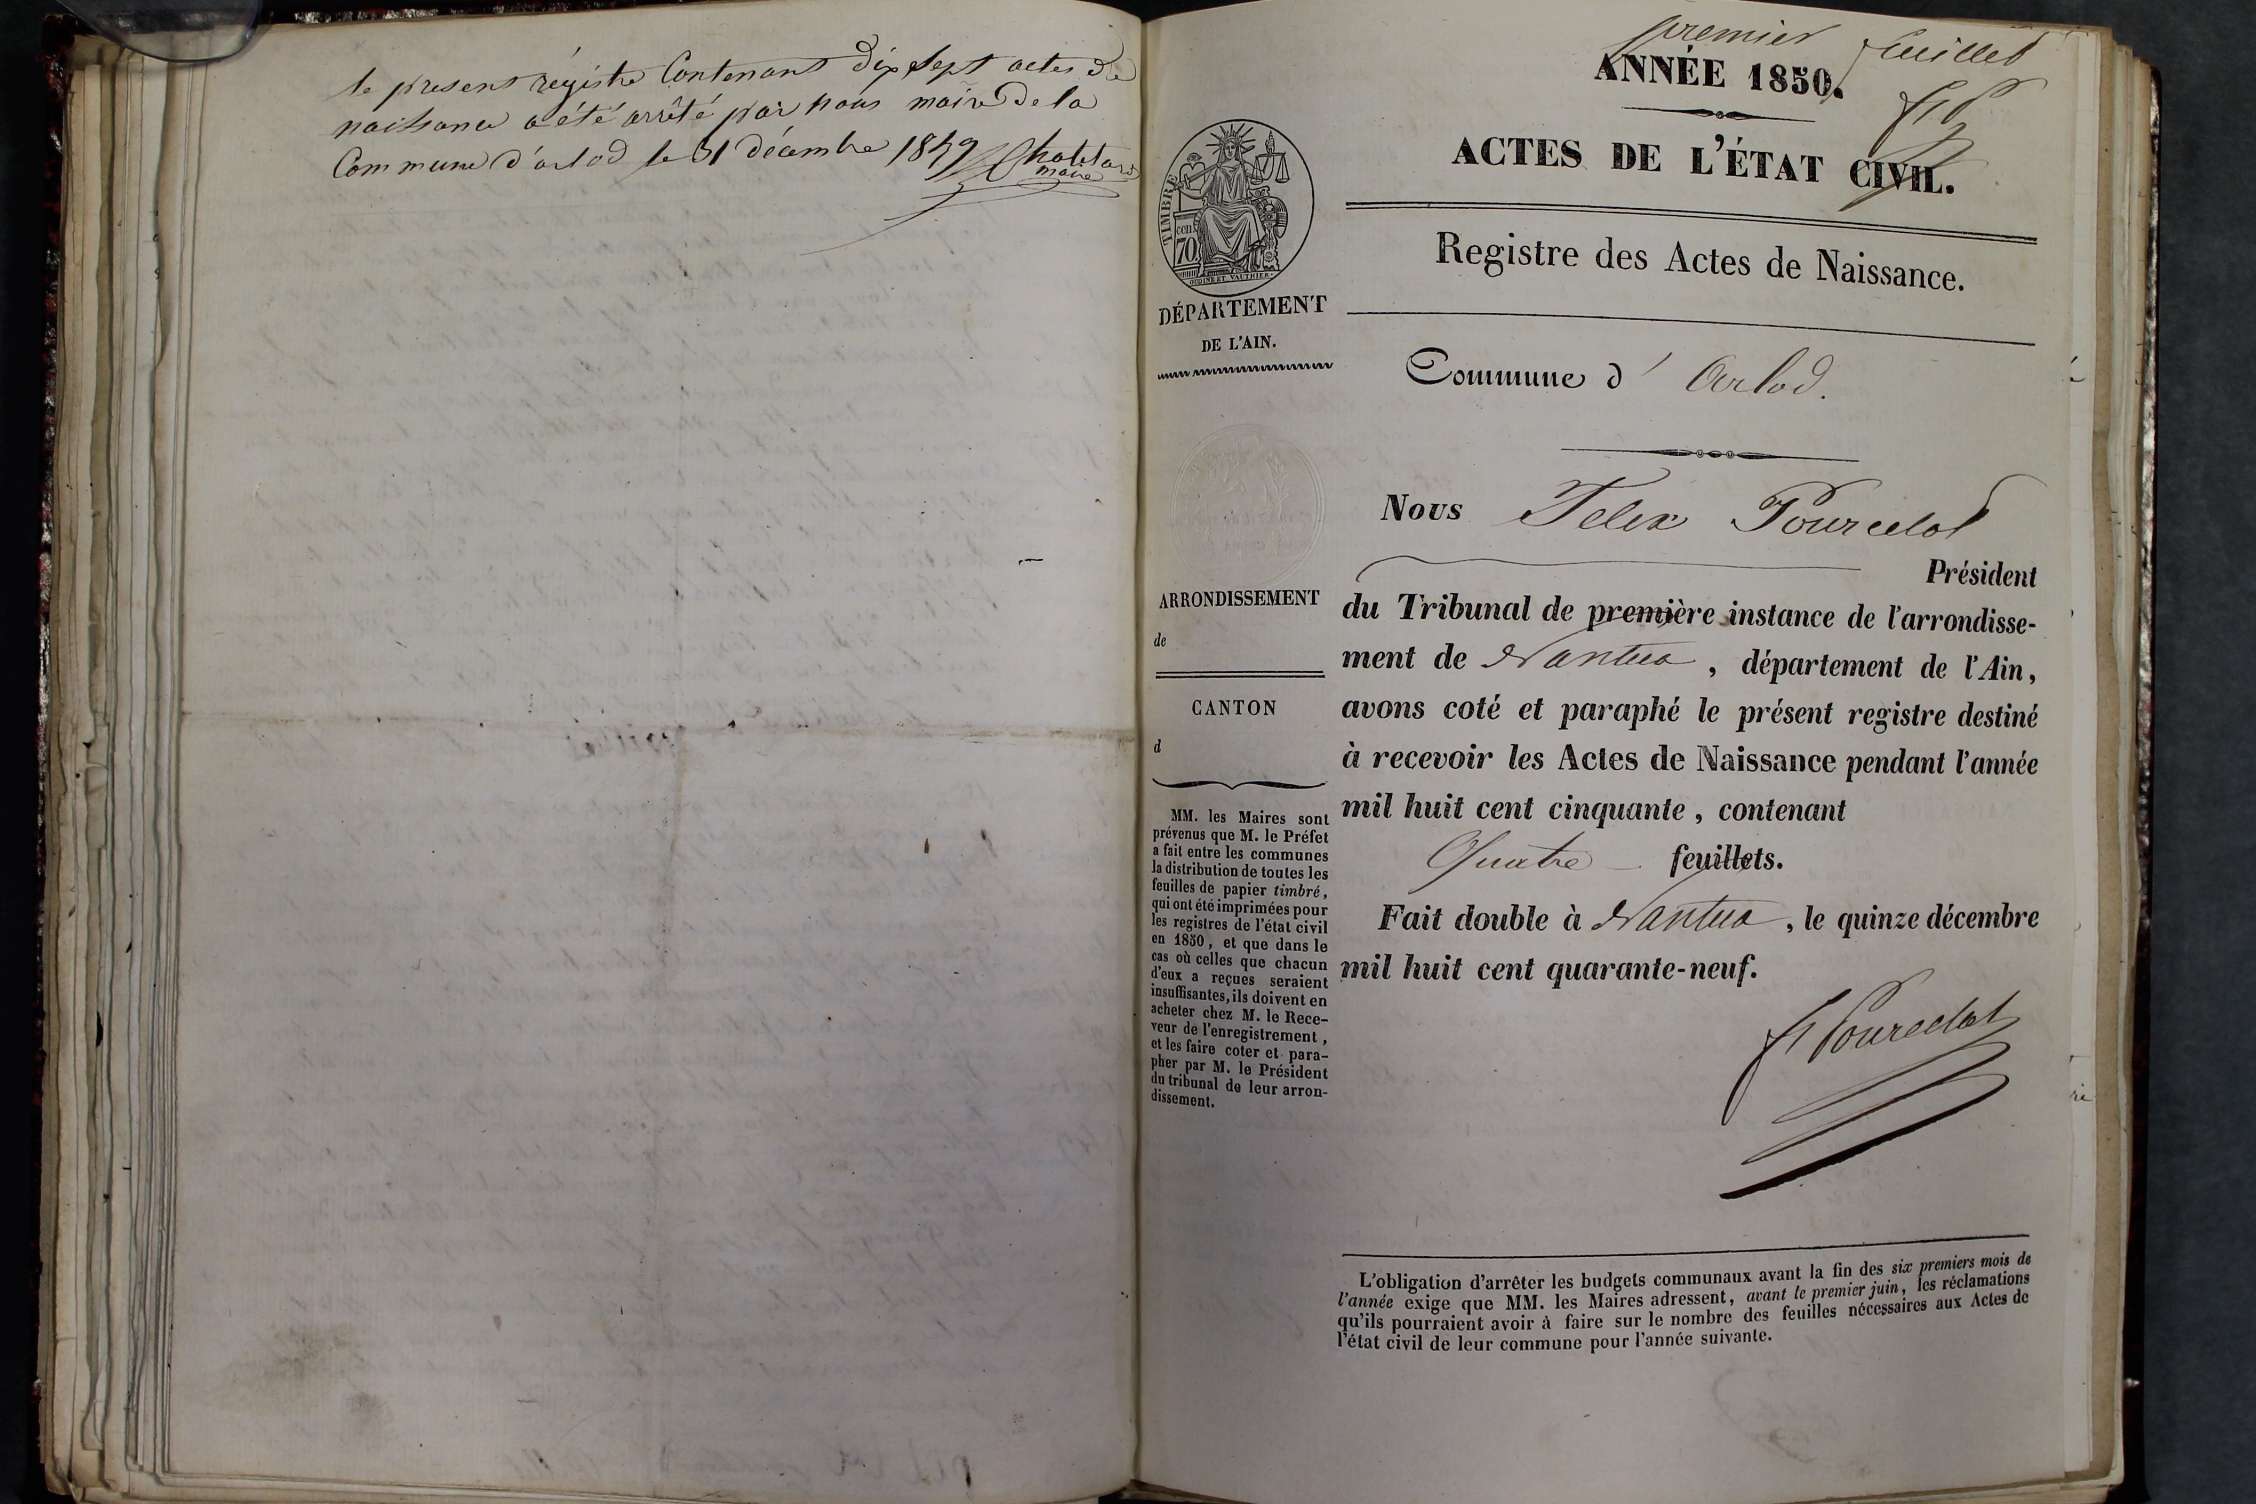 le present régistre Contenant dix sept actes de
naissance a été arrêté par nous maire de la
Commune d'arlod le 31 décembre 1849
maire
premier feuillet
ANNÉE 1850.
ACTES DE L'ÉTAT CIVIL.
Registre des Actes de Naissance.
TIMBRE
70
DÉPARTEMENT
DE L'AIN.
Commune d' Arlod.
Nous Felix Pourcelot
Président
du Tribunal de première instance de l'arrondisse-
ment de Nantua, département de l'Ain,
avons coté et paraphé le présent registre destiné
à recevoir les Actes de Naissance pendant l'année
mil huit cent cinquante, contenant
Quatre feuillets.
Fait double à Nantua, le quinze décembre
mil huit cent quarante-neuf.
f Pourcelot
ARRONDISSEMENT
de
CANTON
d
MM. les Maires sont
prévenus que M. le Préfet
a fait entre les communes
la distribution de toutes les
feuilles de papier timbré,
qui ont été imprimées pour
les registres de l'état civil
en 1850, et que dans le
cas où celles que chacun
d'eux a reçues seraient
insuffisantes, ils doivent en
acheter chez M. le Rece-
veur de l'enregistrement,
et les faire coter et para-
pher par M. le Président
du tribunal de leur arron-
dissement.
L'obligation d'arrêter les budgets communaux avant la fin des six premiers mois de
l'année exige que MM. les Maires adressent, avant le premier juin, les réclamations
qu'ils pourraient avoir à faire sur le nombre des feuilles nécessaires aux Actes de
l'état civil de leur commune pour l'année suivante.